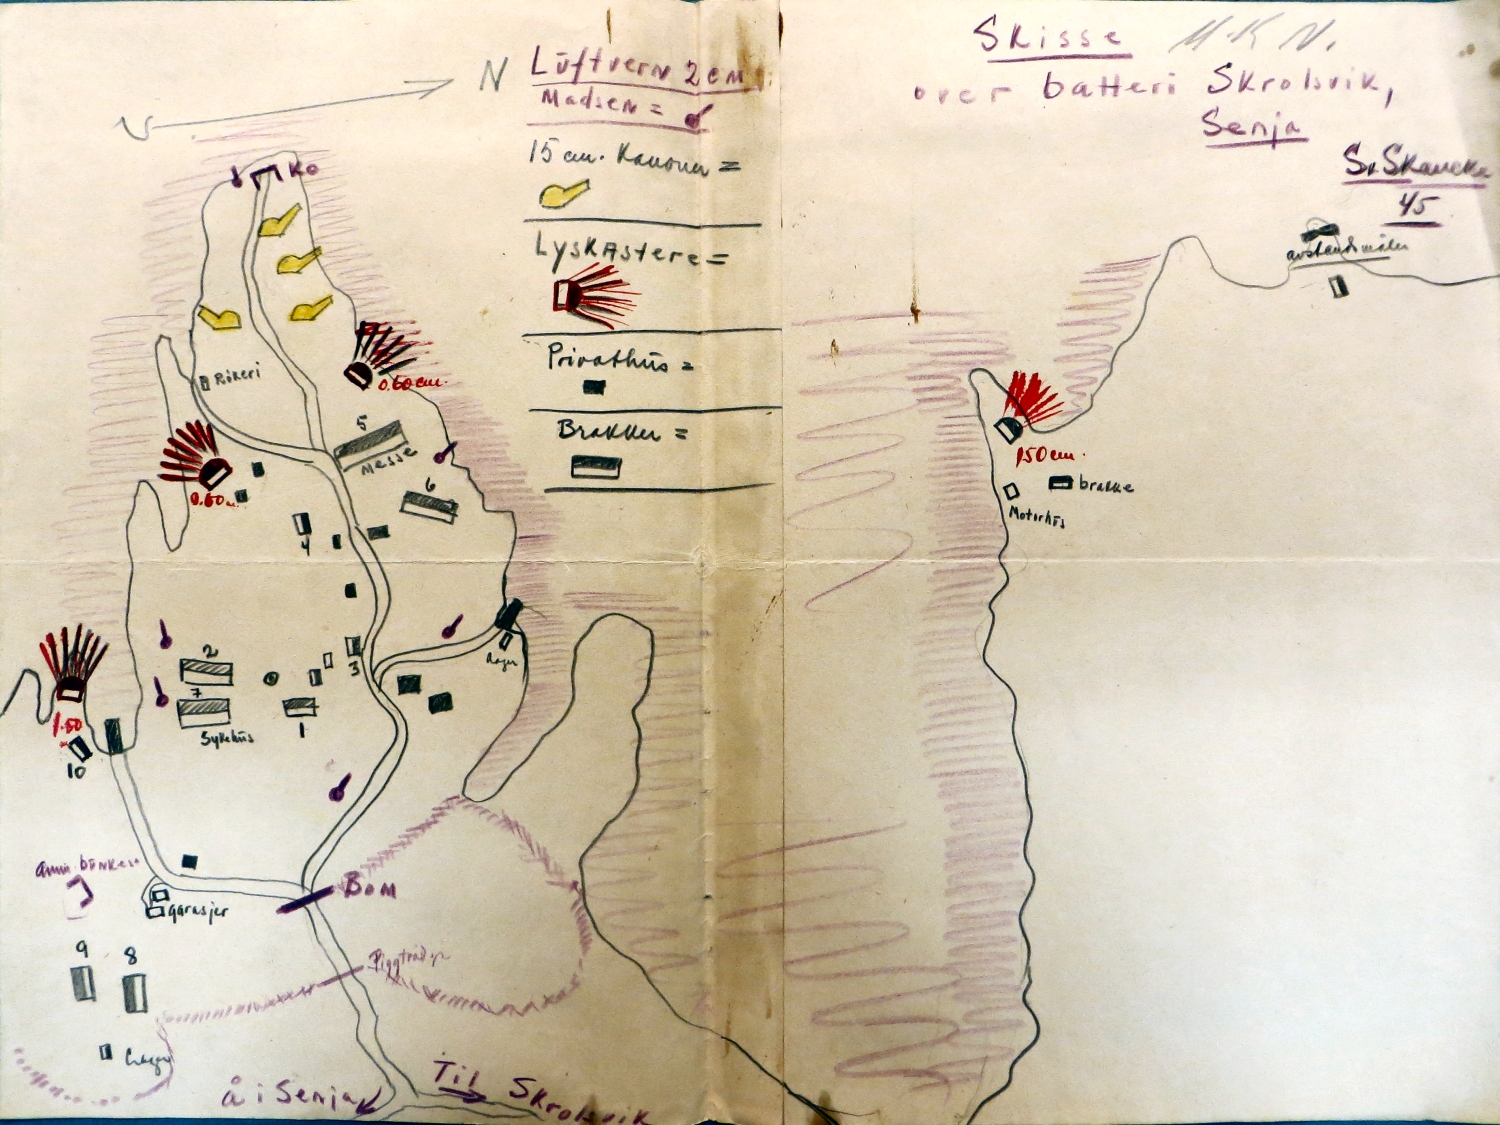 Skisse M.K.N.
over batteri Skrolsvik,
Senja
Sv. Skancke
45
N
Lüftvern 2 cm
Madsen =
15 cm. Kanoner =
Lyskastere =
Privathüs =
Brakker =
Ko
Rökeri
0.60 cm.
5
Messe
6
0.60 cm.
4
3
2
7
Sykehüs
1
Lager
1.50
10
Amm. bünker
garasjer
Bom
Piggtråd
9
8
Lager
Å i Senja
Til Skrolsvik
avstandsmåler
150 cm.
brakke
Motorhüs